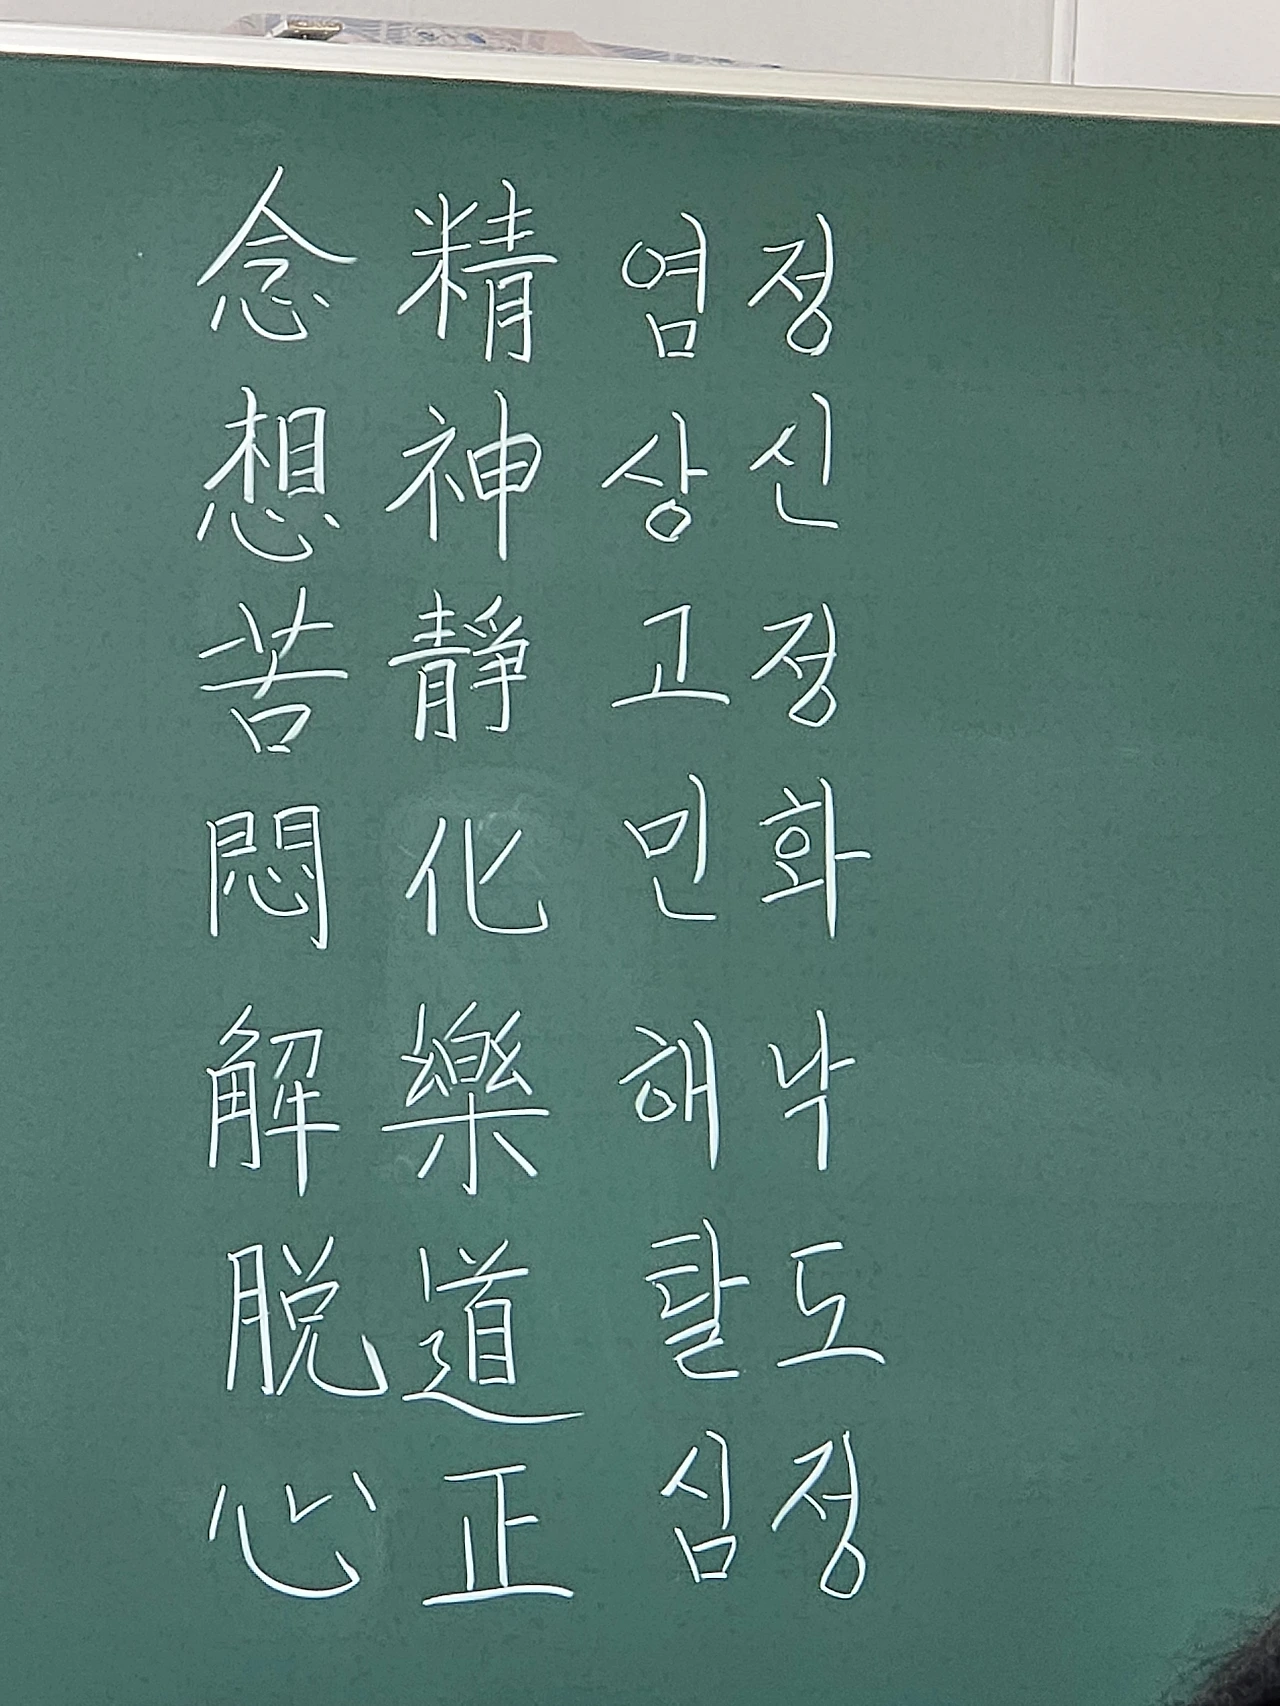 정신정화낙도정
염상고민해탈심
精神靜化樂道正
念想苦悶解脱心